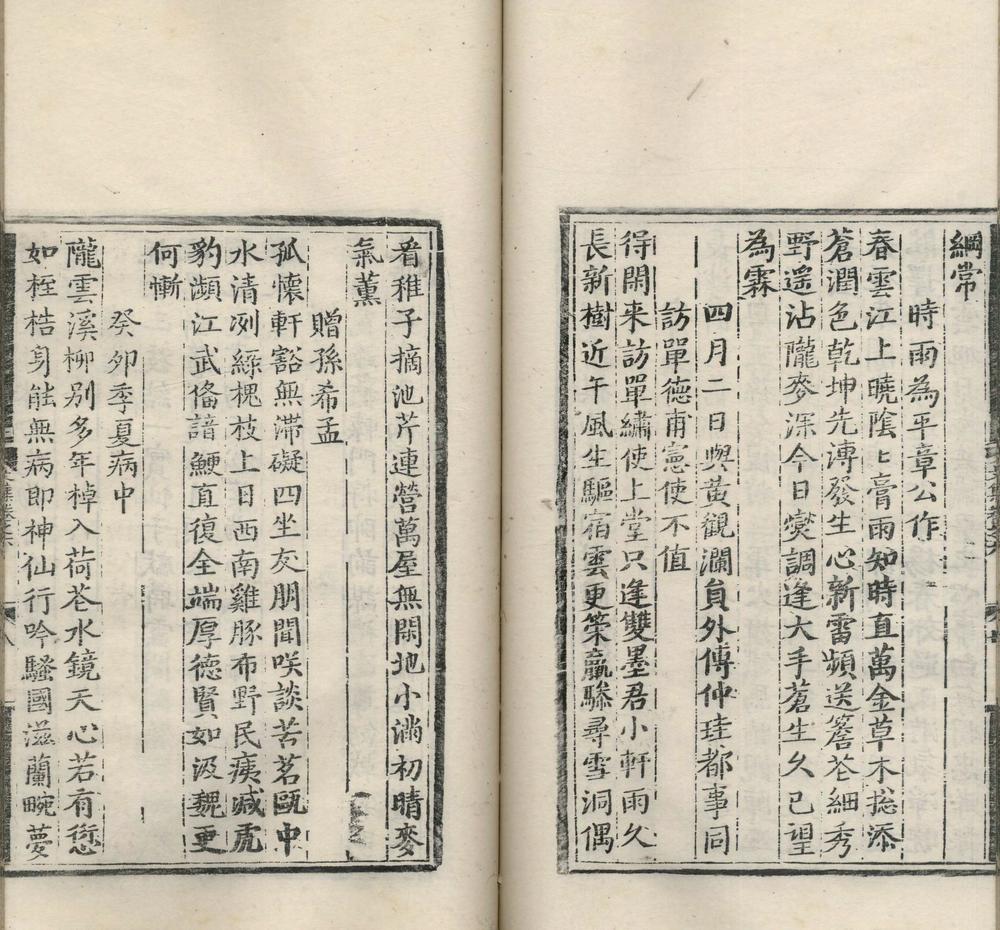 綱常
時雨為平章公作
春雲江上曉隂〻膏雨知時直萬金草木揔添
蒼潤色乾坤先溥發生心新雷頻送簷花細秀
野遥沾隴麥深今日爕調逢大手蒼生久已望
為霖
四月二日與黄觀瀾貟外傅仲珪都事同
訪單德甫憲使不值
得閑来訪單繡使上堂只逢雙墨君小軒雨久
長新樹近午風生驅宿雲更策羸驂尋雪洞偶
看稚子摘池芹連營萬屋無閑地小滿初晴麥
氣薰
贈孫希孟
孤懷軒豁無滯礙四坐交朋聞咲談苦茗甌中
水清冽緑槐枝上日西南雞豚布野民痍减虎
豹瀕江武俻諳鯁直復全端厚德賢如汲魏更
何慚
癸夘季夏病中
隴雲溪柳别多年棹入荷花水鏡天心若有愆
如桎梏身能無病即神仙行吟騷國滋蘭畹夢